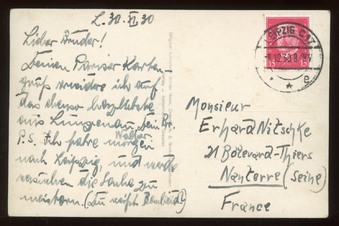 L. 30. XI. 30
Lieber Bruder!
Deinen Pariser Karten-
gruß erwidre ich auf
das ebenso herzlichste
aus Lungenau. Dein Br.
Walter.
P.S. Ich fahre morgen
nach Leipzig, und werde
versuchen die Sache zu
meistern. (Du weißt Bescheid)
LEIPZIG C2
-1.12.30.8-9V
Monsieur
Erhard Nitschke
21 Bolevard-Thiers
Nanterre (Seine)
France